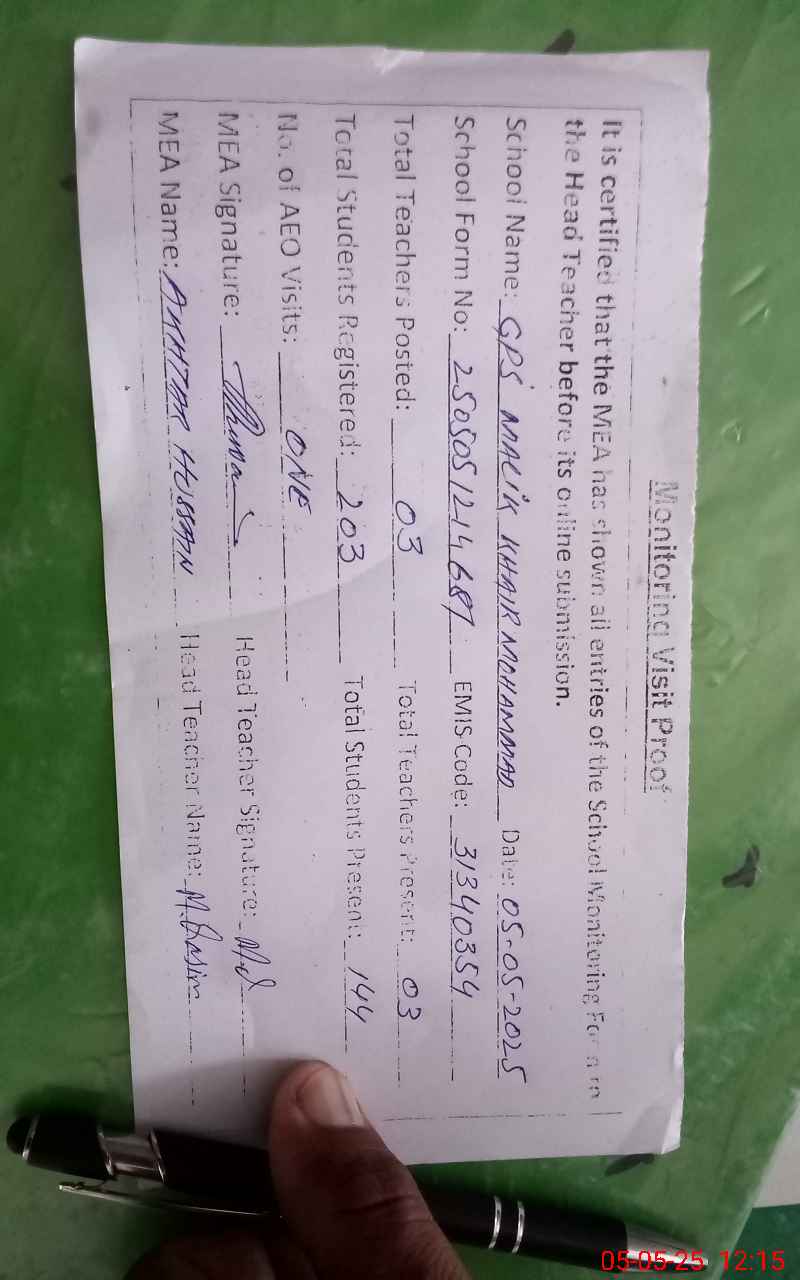 Monitoring Visit Proof
It is certified that the MEA has shown all entries of the School Monitoring Form to
the Head Teacher before its online submission.
School Name: GPS MALIK KHAIR MOHAMMAD Date: 05-05-2025
School Form No: 2505051214687 EMIS Code: 31340354
Total Teachers Posted: 03 Total Teachers Present: 03
Total Students Registered: 203 Total Students Present: 144
No. of AEO Visits: ONE
MEA Signature: Head Teacher Signature:
MEA Name: AKHTAR HUSSAIN Head Teacher Name: M.
05-05-25 12:15